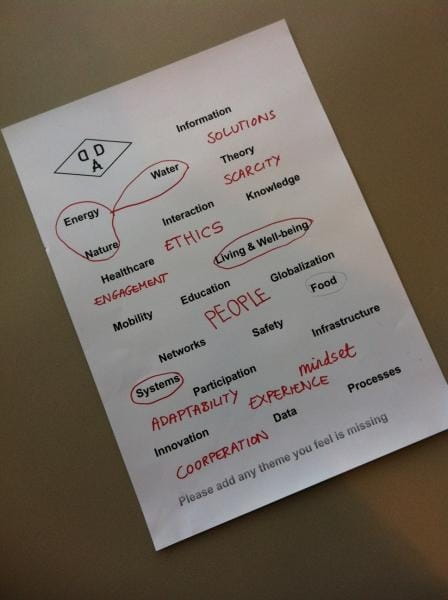 D D A
Information
SOLUTIONS
Theory
Water
SCARCITY
Knowledge
Energy
Interaction
Nature
ETHICS
Living & Well-being
Healthcare
ENGAGEMENT
Education
Globalization
Mobility
PEOPLE
Food
Networks
Safety
Infrastructure
Systems
Participation
mindset
ADAPTABILITY
EXPERIENCE
Processes
Innovation
Data
COORPERATION
Please add any theme you feel is missing